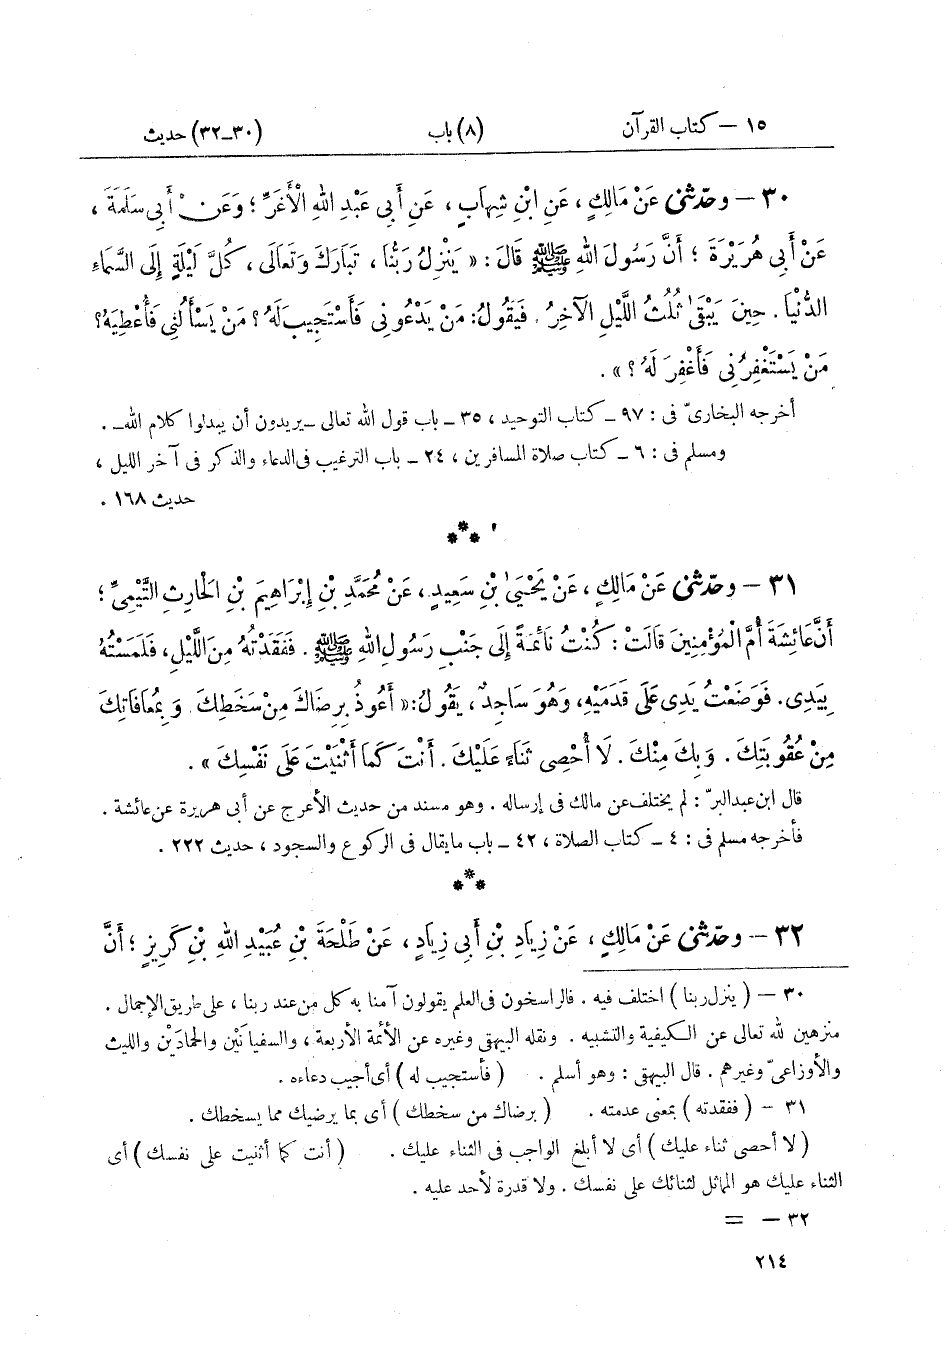 ١٥ – كتاب القرآن (٨) باب (٣٠-٣٢) حديث
٣٠ – وحدّثنى عَنْ مَالِكٍ، عَنِ ابْنِ شِهَابٍ، عَنِ أَبِى عَبْدِ اللهِ الْأَغَرِّ؛ وَعَنْ أَبِى سَلَمَةَ،
عَنْ أَبِى هُرَيْرَةَ؛ أَنَّ رَسُولَ اللهِ ﷺ قَالَ: « يَنْزِلُ رَبُّنَا، تَبَارَكَ وَتَعَالَى، كُلَّ لَيْلَةٍ إِلَى السَّمَاءِ
الدُّنْيَا. حِينَ يَبْقَىٰ ثُلُثُ اللَّيْلِ الْآخِرُ. فَيَقُولُ: مَنْ يَدْعُونِى فَأَسْتَجِيبَ لَهُ؟ مَنْ يَسْأَلُنِى فَأُعْطِيَهُ؟
مَنْ يَسْتَغْفِرُنِى فَأَغْفِرَ لَهُ؟ ».
أخرجه البخارىّ فى: ٩٧ ـ كتاب التوحيد، ٣٥ ـ باب قول الله تعالى ـ يريدون أن يبدلوا كلام الله ـ.
ومسلم فى: ٦ ـ كتاب صلاة المسافرين، ٢٤ ـ باب الترغيب فى الدعاء والذكر فى آخر الليل،
حديث ١٦٨.
***
٣١ – وحدّثنى عَنْ مَالِكٍ، عَنْ يَحْيَىٰ بْنِ سَعِيدٍ، عَنْ مُحَمَّدِ بْنِ إِبْرَاهِيمَ بْنِ الْحَارِثِ التَّيْمِىِّ؛
أَنَّ عَائِشَةَ أُمَّ الْمُؤْمِنِينَ قَالَتْ: كُنْتُ نَائِمَةً إِلَى جَنْبِ رَسُولِ اللهِ ﷺ. فَفَقَدْتُهُ مِنَ اللَّيْلِ، فَلَمَسْتُهُ
بِيَدِى. فَوَضَعْتُ يَدِى عَلَى قَدَمَيْهِ، وَهُوَ سَاجِدٌ، يَقُولُ: « أَعُوذُ بِرِضَاكَ مِنْ سَخَطِكَ. وَ بِمُعَافَاتِكَ
مِنْ عُقُوبَتِكَ. وَ بِكَ مِنْكَ. لَا أُحْصِى ثَنَاءً عَلَيْكَ. أَنْتَ كَمَا أَثْنَيْتَ عَلَى نَفْسِكَ ».
قال ابن عبد البرّ: لم يختلف عن مالك فى إرساله. وهو مسند من حديث الأعرج عن أبى هريرة عن عائشة.
فأخرجه مسلم فى: ٤ ـ كتاب الصلاة، ٤٢ ـ باب ما يقال فى الركوع والسجود، حديث ٢٢٢.
***
٣٢ – وحدّثنى عَنْ مَالِكٍ، عَنْ زِيَادِ بْنِ أَبِى زِيَادٍ، عَنْ طَلْحَةَ بْنِ عُبَيْدِ اللهِ بْنِ كَرِيزٍ؛ أَنَّ
٣٠ – ( ينزل ربنا ) اختلف فيه. فالراسخون فى العلم يقولون آمنا به كل من عند ربنا، على طريق الإجمال.
منزهين لله تعالى عن الكيفية والتشبيه. ونقله البيهقى وغيره عن الأئمة الأربعة، والسفيانَيْن والحمادَيْن والليث
والأوزاعىّ وغيرهم. قال البيهقى: وهو أسلم. ( فأستجيب له ) أى أجيب دعاءه.
٣١ – ( ففقدته ) بمعنى عدمته. ( برضاك من سخطك ) أى بما يرضيك مما يسخطك.
( لا أحصى ثناء عليك ) أى لا أبلغ الواجب فى الثناء عليك. ( أنت كما أثنيت على نفسك ) أى
الثناء عليك هو المماثل لثنائك على نفسك. ولا قدرة لأحد عليه.
٣٢ – =
٢١٤